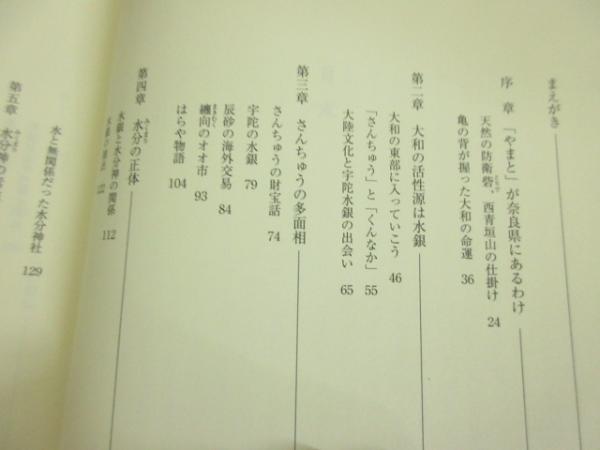 まえがき
序章 「やまと」が奈良県にあるわけ
天然の防衛砦、西青垣山の仕掛け 24
亀の背が握った大和の命運 36
第二章 大和の活性源は水銀
大和の東部に入っていこう 46
「さんちゅう」と「くんなか」 55
大陸文化と宇陀水銀の出会い 65
第三章 さんちゅうの多面相
さんちゅうの財宝話 74
宇陀の水銀 79
辰砂の海外交易 84
纏向のオオ市 93
はらや物語 104
第四章 水分の正体
水銀と水分神の関係 112
水と無関係だった水分神社 129
第五章 水分神の